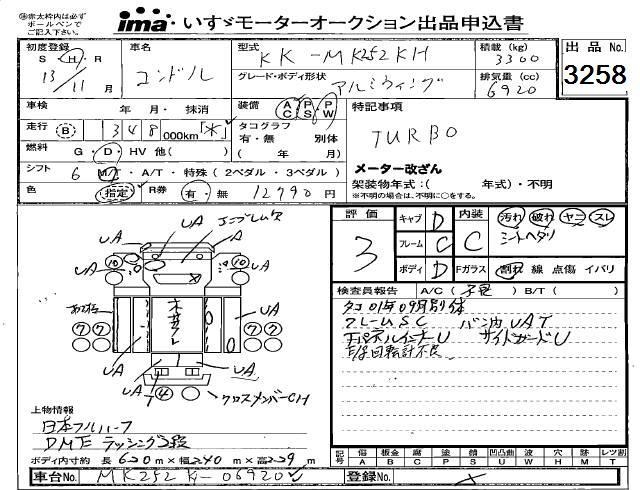 ※赤太枠内は必ず
ボールペンで
ご記入下さい。
ima いすゞモーターオークション出品申込書
初度登録 S・H・R 13/11月
車名 コンドル
型式 KK-MK252KH
積載 (kg) 3300
出品No. 3258
グレード・ボディ形状 アルミウイング
排気量 (cc) 6920
車検 年・月・抹消
装備 AC PS PW
特記事項
走行 (B) 1348 000km「*」
タコグラフ 有・無 別体
( 年 月)
TURBO
燃料 G・D・HV 他( )
シフト 6 MT・A/T・特殊(2ペダル・3ペダル)
メーター改ざん
色 指定 R券 有・無 12790円
架装物年式:( 年式)・不明
※不明の場合は、不明に○をする。
評価 3
キャブ D
内装 C
汚れ 破れ ヤニ スレ
シートヘタリ
フレーム C
ボディ D
Fガラス 割れ 線 点傷 イバリ
検査員報告 A/C( ) B/T( )
タコ01年09月別体
サイドガードU
エンブレムX
UA UA A
UA 10 10 UA
7 7 7 7
UA UA UA
UA 4
クロスメンバーCH
上物情報
日本フルハーフ
ラッシング3段
ボディ内寸約 長620m×幅240m×高239m
記号 傷A 板金B 腐C 塗P 錆S 凹凸曲U 波W 穴H 跡M レツ割T
車台No. MK252K-06920
登録No.